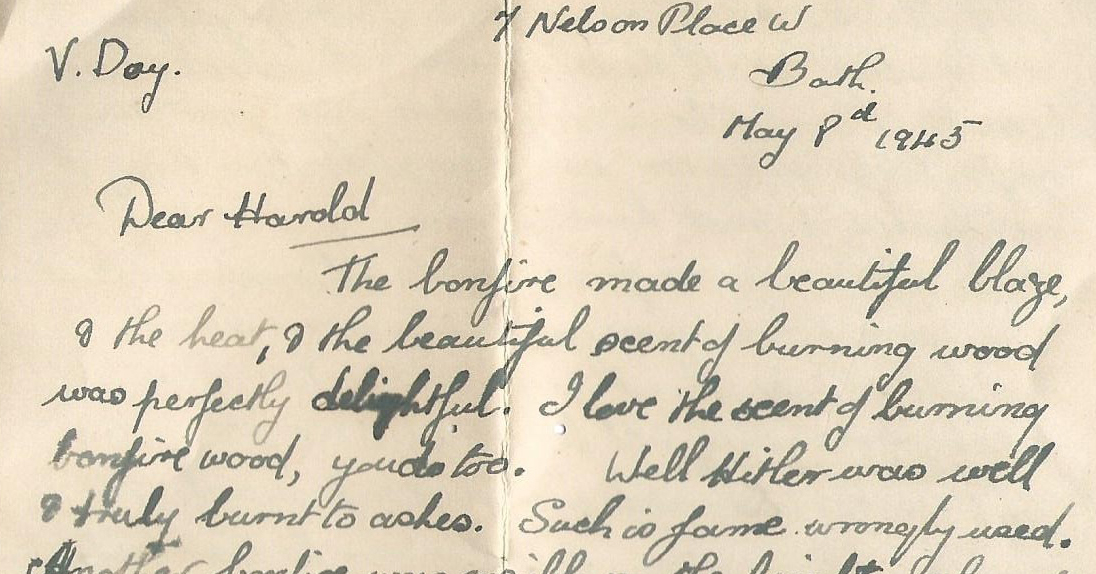 7 Nelson Place W
V. Day.
Bath.
May 8d 1945
Dear Harold
The bonfire made a beautiful blaze,
& the heat, & the beautiful scent of burning wood
was perfectly delightful. I love the scent of burning
bonfire wood, you do too. Well Hitler was well
& truly burnt to ashes. Such is fame wrongly used.
Another bonfire